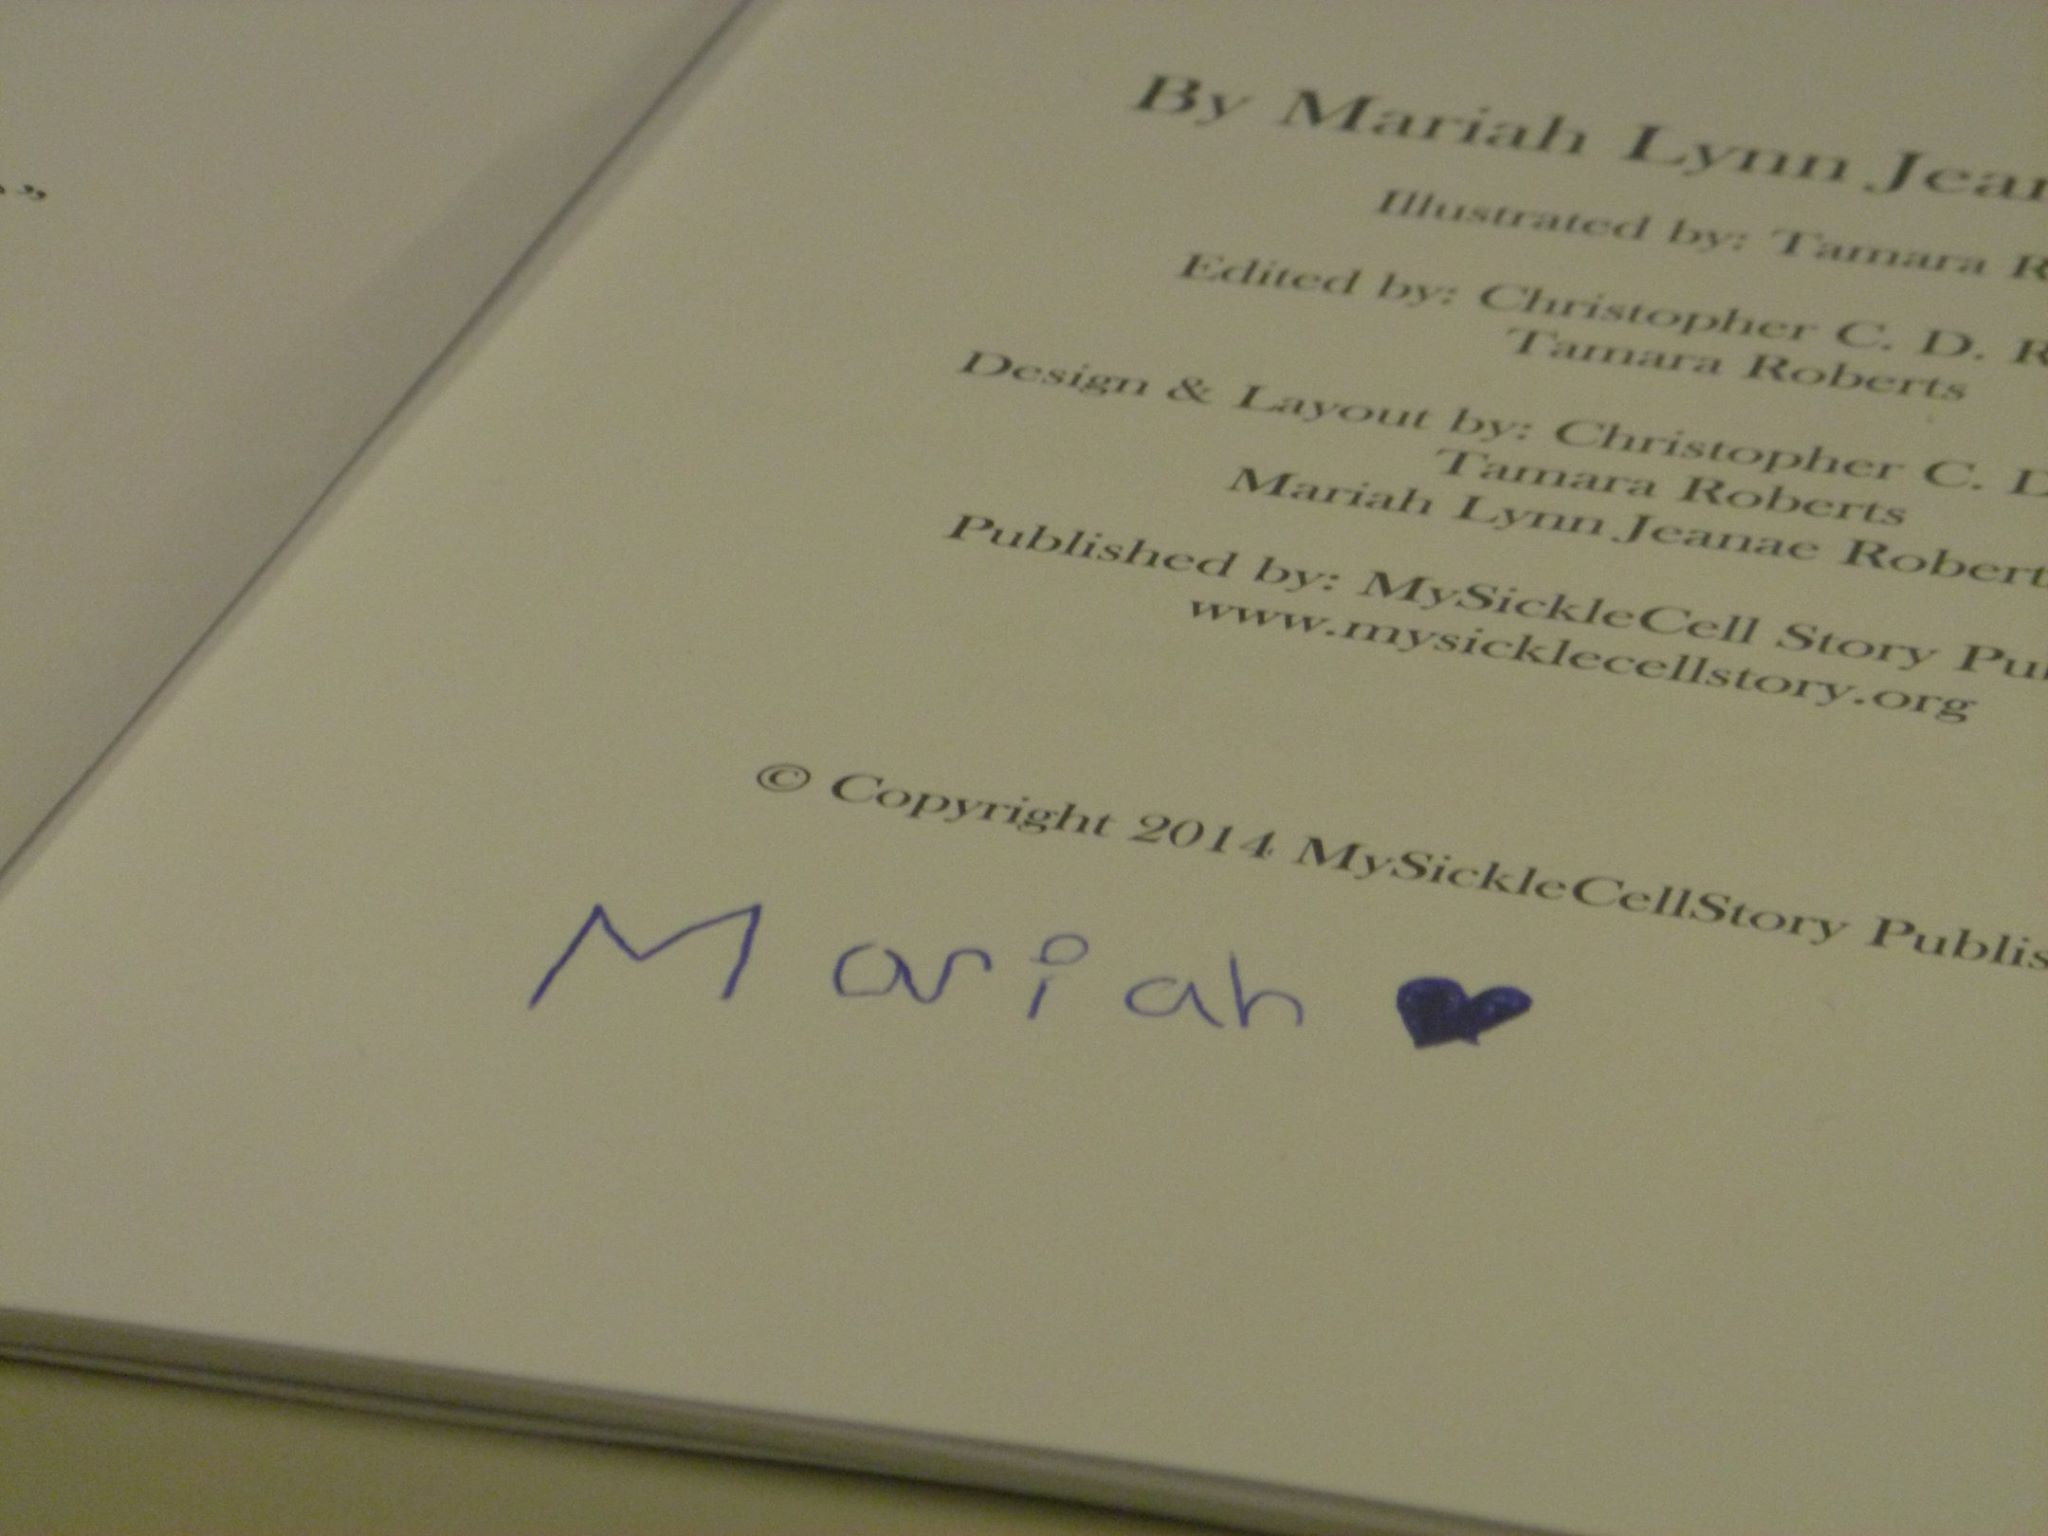 .”
By Mariah Lynn Jean
Illustrated by: Tamara R
Edited by: Christopher C. D. R
Tamara Roberts
Design & Layout by: Christopher C. D
Tamara Roberts
Mariah Lynn Jeanae Robert
Published by: MySickleCell Story Pu
www.mysicklecellstory.org
© Copyright 2014 MySickleCellStory Publis
Mariah